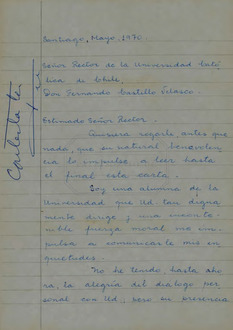 Santiago, Mayo. 1970.
Señor Rector de la Universidad Cató
lica de Chile,
Don Fernando Castillo Velasco.
Estimado Señor Rector.
Quisiera rogarle, antes que
nada, que su natural benevolen
cia lo impulse, a leer hasta
el final esta carta.
Soy una alumna de la
Universidad que Ud tan digna
mente dirige y una incontro
lable fuerza moral me im
pulsa a comunicarle mis in
quietudes.
No he tenido hasta aho
ra, la alegría del diálogo per
sonal con Ud., pero su presencia